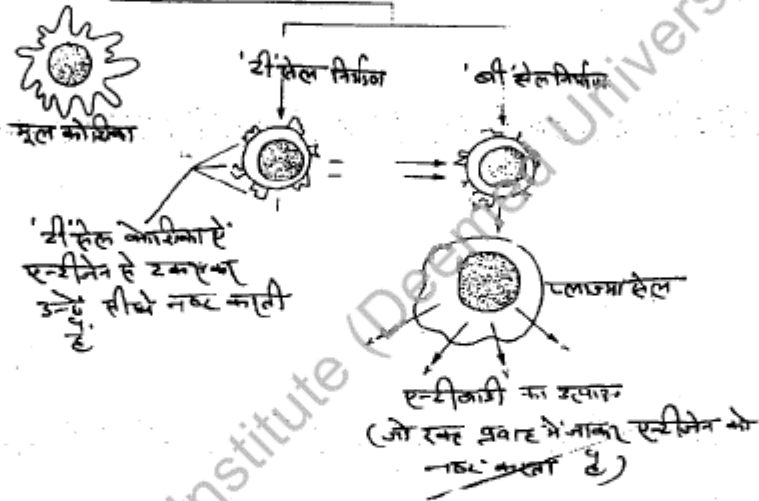 'टी' सेल निर्माण
'बी' सेल निर्माण
मूल कोशिका
'टी' सेल कोशिकाऐं
एन्टीजेन से टकराकर
उन्हें सीधे नष्ट करती
हैं
प्लाज्मा सेल
एन्टीबाडी का उत्पादन
(जो रक्त प्रवाह में जाकर एन्टीजेन को
नष्ट करता है)
Institute (Deemed Univers